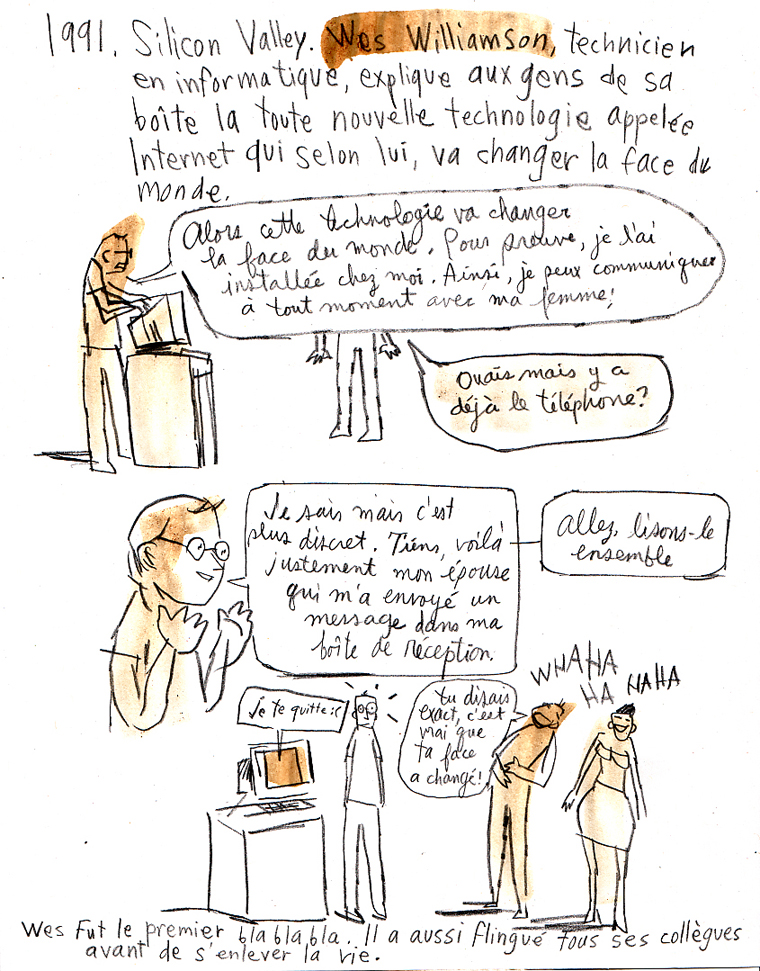 1991. Silicon Valley. Wes Williamson, technicien
en informatique, explique aux gens de sa
boîte la toute nouvelle technologie appelée
Internet qui selon lui, va changer la face du
monde.
Alors cette technologie va changer
la face du monde. Pour preuve, je l'ai
installée chez moi. Ainsi, je peux communiquer
à tout moment avec ma femme!
Ouais mais y a
déjà le téléphone?
Je sais mais c'est
plus discret. Tiens, voilà
justement mon épouse
qui m'a envoyé un
message dans ma
boîte de réception.
Allez, lisons-le
ensemble
Je te quitte :(
tu disais
exact, c'est
vrai que
ta face
a changé!
WHAHA
HA HAHA
Wes fut le premier bla bla bla.. Il a aussi flingué tous ses collègues
avant de s'enlever la vie.